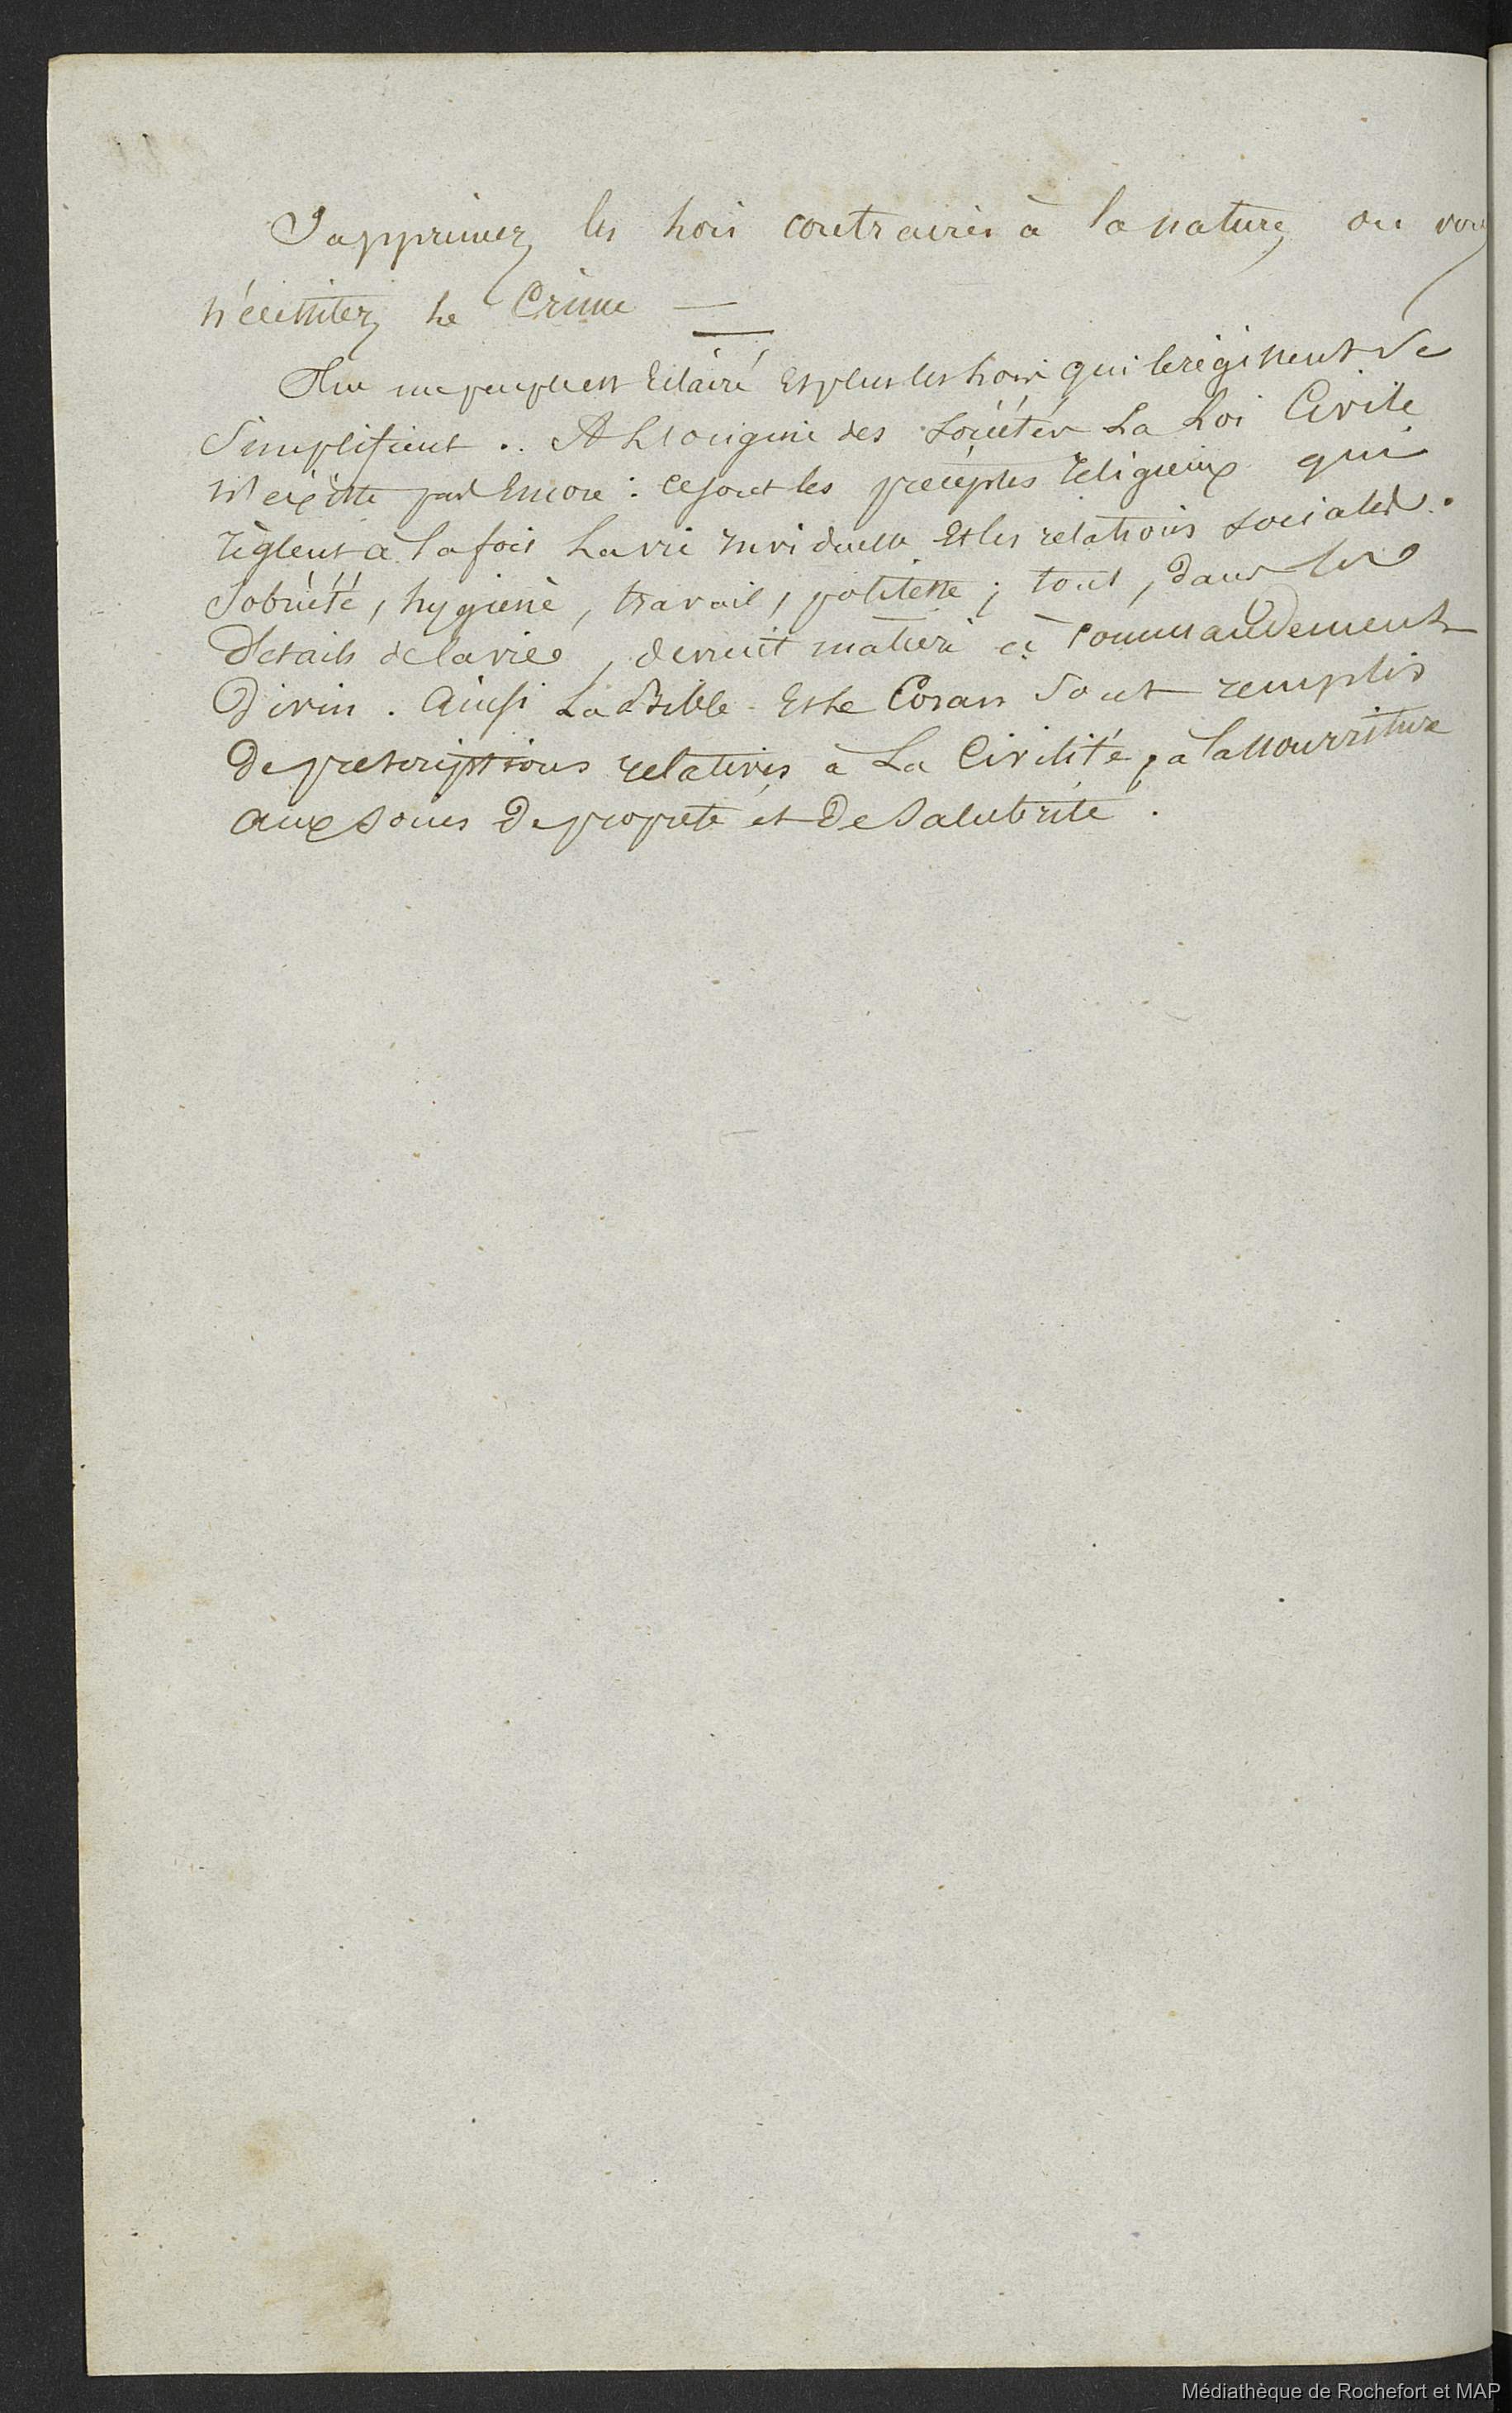 Supprimez les Lois contraires à la nature, ou vous
nécessitez Le Crime —
Plus un peuple est Eclairé Et plus les Lois qui le régissent Se
Simplifient .. A L'origine des Sociétés La Loi Civile
N'existe pas Encore : Ce sont les préceptes religieux qui
règlent à la fois La vie Inviduelle Et les relations Sociales.
Sobriété, hygiène, travail, politesse ; tout, dans les
Détails de la vie, devient matière à Commandement
Divin. Ainsi La Bible Et Le Coran Sont remplis
De prescriptions relatives à La Civilité, à la Nourriture
aux Soins De propreté et De Salubrité.
Médiathèque de Rochefort et MAP